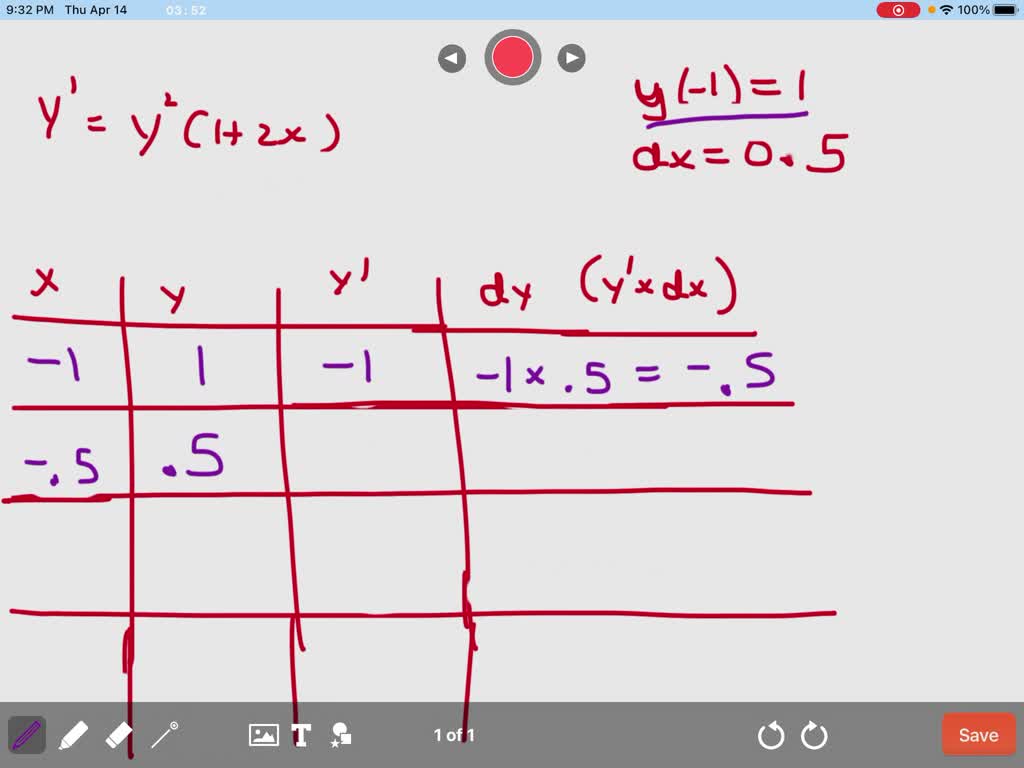 9:32 PM Thu Apr 14 03:52 100%
y' = y²(1+2x)
y(-1)=1
dx=0.5
x y y' dy (y'xdx)
-1 1 -1 -1x.5 = -.5
-.5 .5
1 of 1 Save